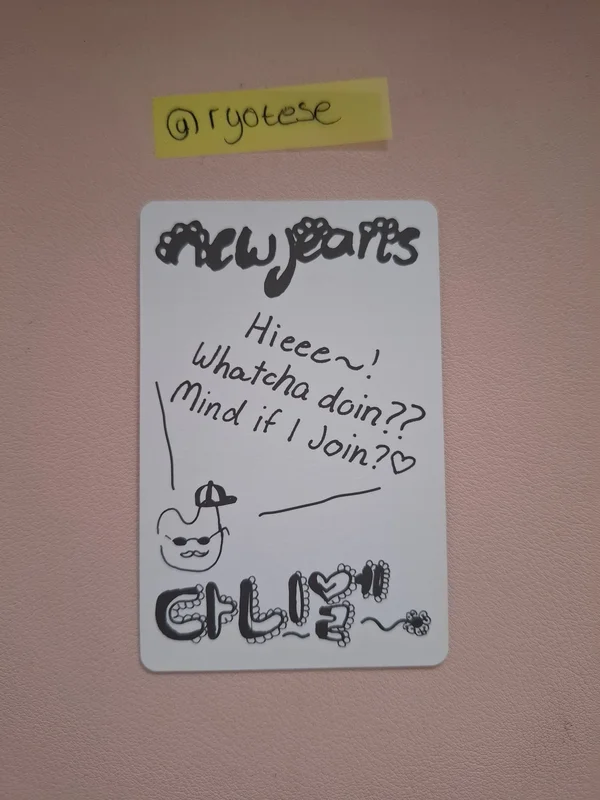 @ryotese
newjeans
Hieee~!
Whatcha doin??
Mind if I Join?♡
다니엘~